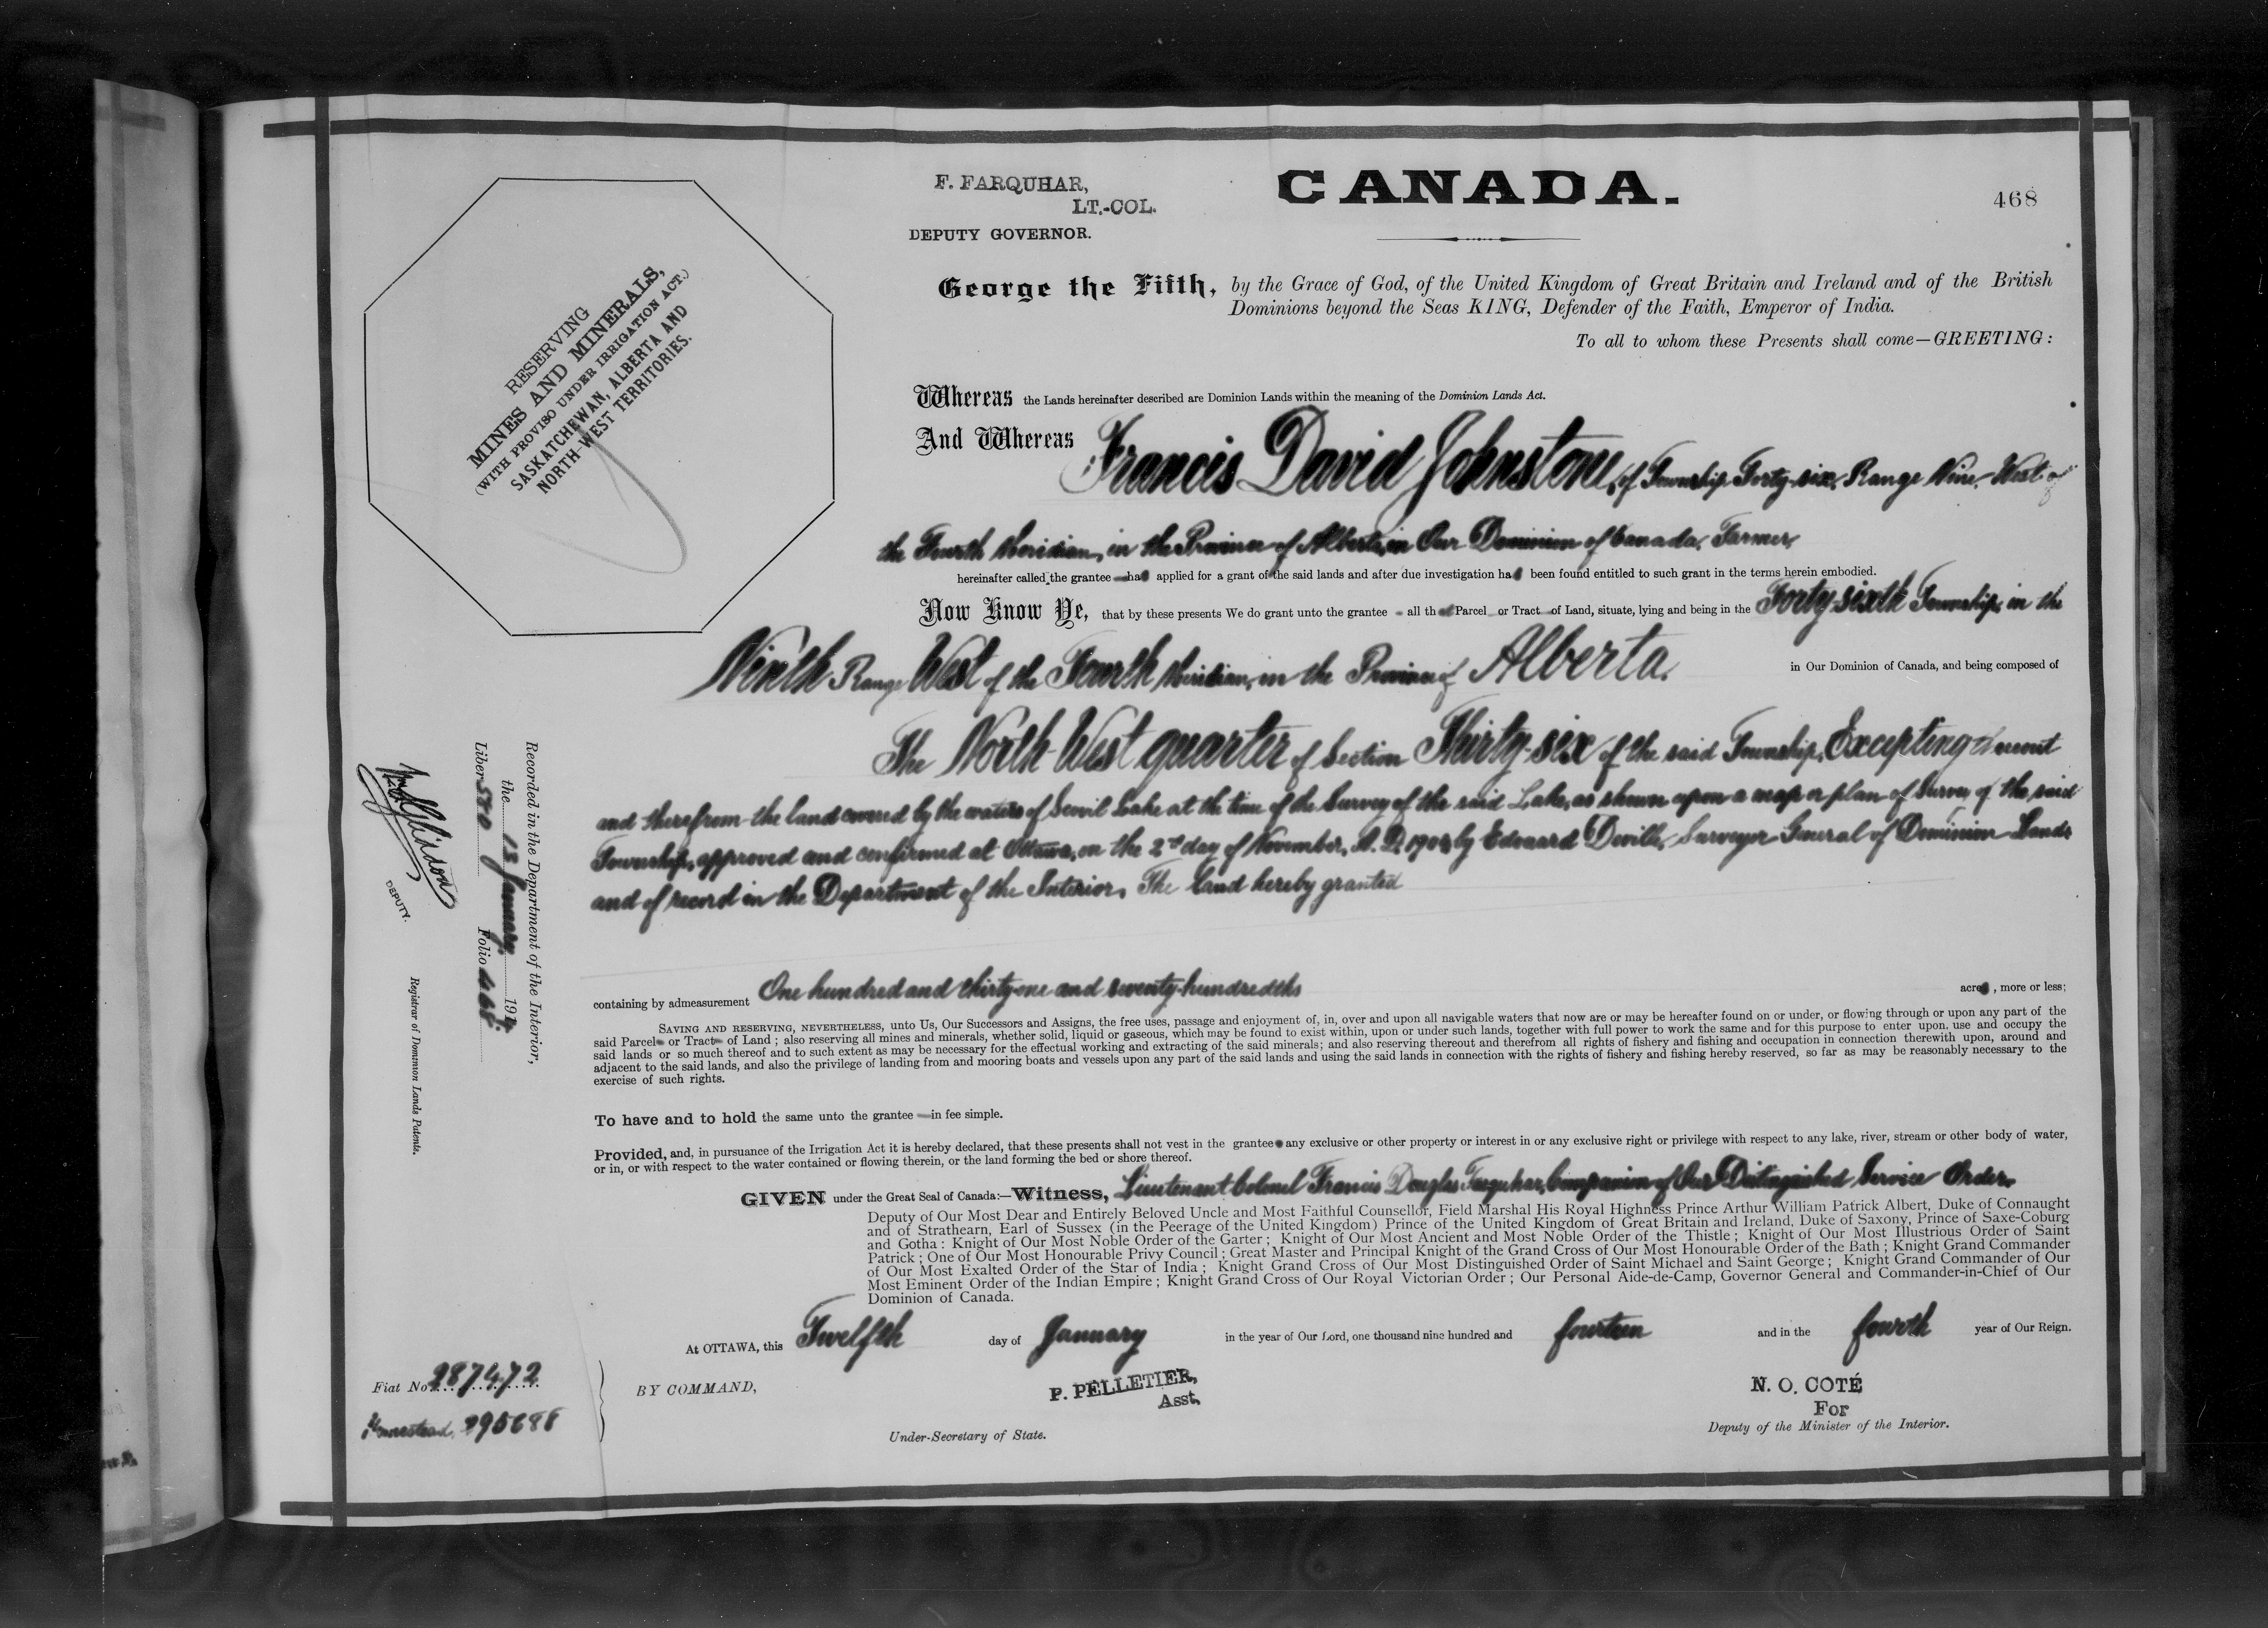 F. FARQUHAR,
LT.-COL.
DEPUTY GOVERNOR.
CANADA.
468
RESERVING
MINES AND MINERALS,
(WITH PROVISO UNDER IRRIGATION ACT.)
SASKATCHEWAN, ALBERTA AND
NORTH-WEST TERRITORIES.
George the Fifth, by the Grace of God, of the United Kingdom of Great Britain and Ireland and of the British
Dominions beyond the Seas KING, Defender of the Faith, Emperor of India.
To all to whom these Presents shall come—GREETING:
Whereas the Lands hereinafter described are Dominion Lands within the meaning of the Dominion Lands Act.
And Whereas Francis David Johnstone, of Township Forty-six, Range Nine, West of
the Fourth Meridian, in the Province of Alberta, in Our Dominion of Canada, Farmer,
hereinafter called the grantee has applied for a grant of the said lands and after due investigation has been found entitled to such grant in the terms herein embodied.
Now Know Ye, that by these presents We do grant unto the grantee all that Parcel or Tract of Land, situate, lying and being in the Forty-sixth Township, in the
Ninth Range West of the Fourth Meridian, in the Province of Alberta, in Our Dominion of Canada, and being composed of
The North West quarter of Section Thirty-six of the said Township, Excepting thereout
and therefrom the land covered by the waters of Lake at the time of the Survey of the said Lake, as shown upon a map or plan of Survey of the said
Township, approved and confirmed at Ottawa, on the 2nd day of November, A.D. by Edouard Deville, Surveyor General of Dominion Lands
and of record in the Department of the Interior, The land hereby granted
containing by admeasurement One hundred and thirty-one and seventy-hundredths acres, more or less;
SAVING AND RESERVING, NEVERTHELESS, unto Us, Our Successors and Assigns, the free uses, passage and enjoyment of, in, over and upon all navigable waters that now are or may be hereafter found on or under, or flowing through or upon any part of the
said Parcel or Tract of Land; also reserving all mines and minerals, whether solid, liquid or gaseous, which may be found to exist within, upon or under such lands, together with full power to work the same and for this purpose to enter upon, use and occupy the
said lands or so much thereof and to such extent as may be necessary for the effectual working and extracting of the said minerals; and also reserving thereout and therefrom all rights of fishery and fishing and occupation in connection therewith upon, around and
adjacent to the said lands, and also the privilege of landing from and mooring boats and vessels upon any part of the said lands and using the said lands in connection with the rights of fishery and fishing hereby reserved, so far as may be reasonably necessary to the
exercise of such rights.
To have and to hold the same unto the grantee in fee simple.
Provided, and, in pursuance of the Irrigation Act it is hereby declared, that these presents shall not vest in the grantee any exclusive or other property or interest in or any exclusive right or privilege with respect to any lake, river, stream or other body of water,
or in, or with respect to the water contained or flowing therein, or the land forming the bed or shore thereof.
GIVEN under the Great Seal of Canada:—Witness, Lieutenant Colonel Francis Douglas Farquhar, Companion of Our Distinguished Service Order,
Deputy of Our Most Dear and Entirely Beloved Uncle and Most Faithful Counsellor, Field Marshal His Royal Highness Prince Arthur William Patrick Albert, Duke of Connaught
and of Strathearn, Earl of Sussex (in the Peerage of the United Kingdom) Prince of the United Kingdom of Great Britain and Ireland, Duke of Saxony, Prince of Saxe-Coburg
and Gotha: Knight of Our Most Noble Order of the Garter; Knight of Our Most Ancient and Most Noble Order of the Thistle; Knight of Our Most Illustrious Order of Saint
Patrick; One of Our Most Honourable Privy Council; Great Master and Principal Knight of the Grand Cross of Our Most Honourable Order of the Bath; Knight Grand Commander
of Our Most Exalted Order of the Star of India; Knight Grand Cross of Our Most Distinguished Order of Saint Michael and Saint George; Knight Grand Commander of Our
Most Eminent Order of the Indian Empire; Knight Grand Cross of Our Royal Victorian Order; Our Personal Aide-de-Camp, Governor General and Commander-in-Chief of Our
Dominion of Canada.
At OTTAWA, this Twelfth day of January in the year of Our Lord, one thousand nine hundred and fourteen and in the fourth year of Our Reign.
BY COMMAND,
P. PELLETIER,
Asst.
Under-Secretary of State.
N. O. COTÉ
For
Deputy of the Minister of the Interior.
Recorded in the Department of the Interior,
the 13 January 1914.
Liber 580 Folio 468.
DEPUTY.
Registrar of Dominion Lands Patents.
Fiat No. 287472
Homestead, 295688